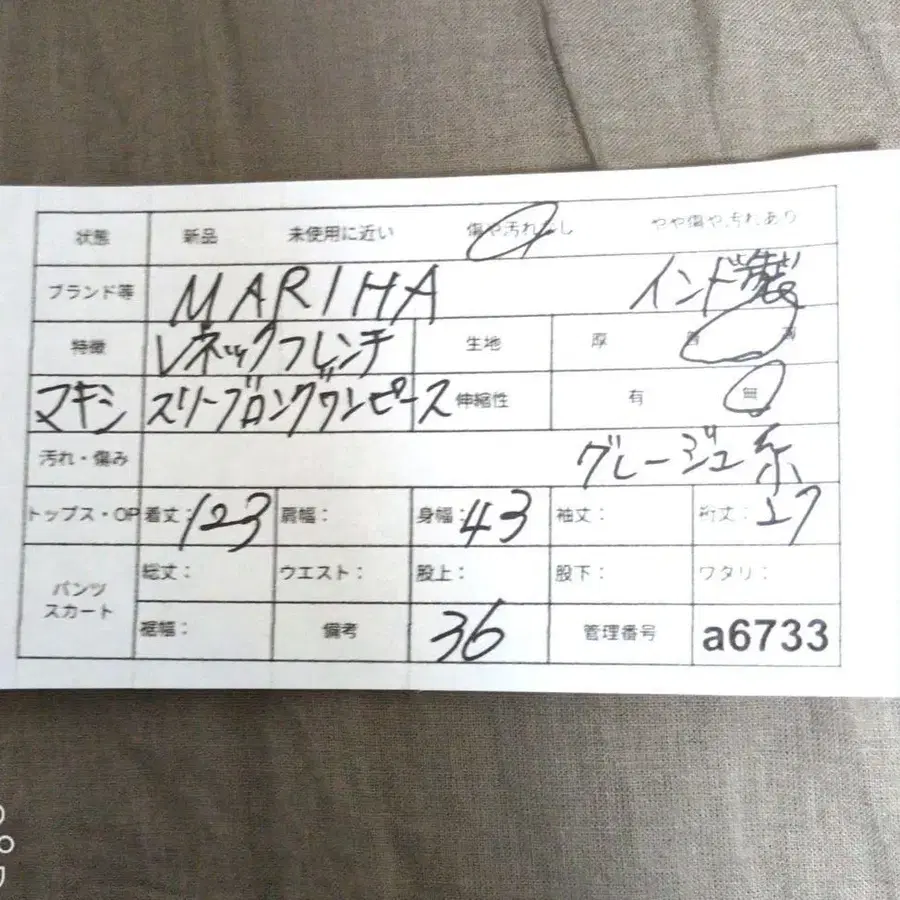 状態 新品 未使用に近い 傷や汚れなし やや傷や汚れあり
ブランド等 MARIHA インド製
特徴 Vネックフレンチ 生地 厚 普 薄
マキシ スリーブロングワンピース 伸縮性 有 無
汚れ・傷み グレージュ系
トップス・OP 着丈:123 肩幅: 身幅:43 袖丈: 裄丈:27
パンツ スカート 総丈: ウエスト: 股上: 股下: ワタリ:
裾幅: 備考 36 管理番号 a6733